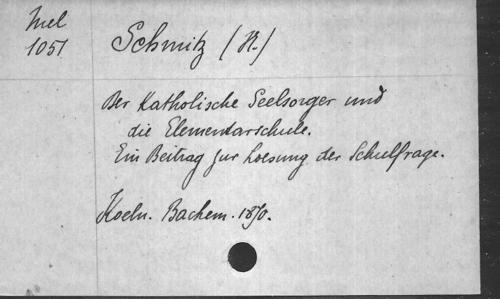 Mel
1051
Schmitz (H.)
Der Katholische Seelsorger und
die Elementarschule.
Ein Beitrag zur Loesung der Schulfrage.
Koeln. Bachem. 1870.